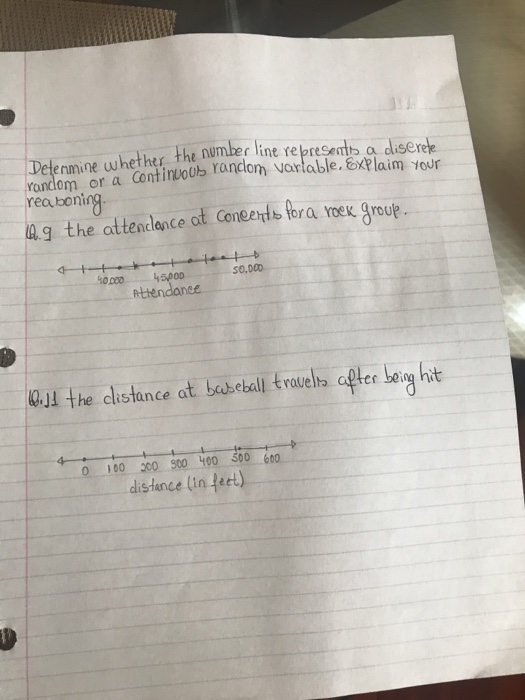 Determine whether the number line represents a discrete
random or a continuous random variable. Explaim your
reasoning.
Q.9 the attendance at concents for a rock group.
40,000 45,000 50,000
Attendance
Q.11 the distance at baseball travels after being hit
0 100 200 300 400 500 600
distance (in feet)